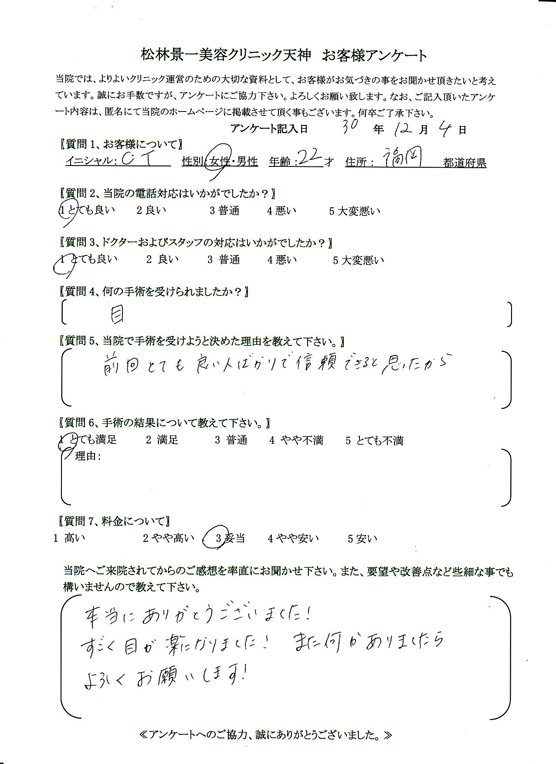 松林景一美容クリニック天神　お客様アンケート
当院では、よりよいクリニック運営のための大切な資料として、お客様がお気づきの事をお聞かせ頂きたいと考え
ています。誠にお手数ですが、アンケートにご協力下さい。よろしくお願い致します。なお、ご記入頂いたアンケ
ート内容は、匿名にて当院のホームページに掲載させて頂く事もございます。何卒ご了承下さい。
アンケート記入日　30　年　12　月　4　日
【質問1、お客様について】
イニシャル：OT　性別：女性・男性　年齢：22才　住所：福岡　都道府県
【質問2、当院の電話対応はいかがでしたか？】
1とても良い　2良い　3普通　4悪い　5大変悪い
【質問3、ドクターおよびスタッフの対応はいかがでしたか？】
1とても良い　2 良い　3 普通　4悪い　5大変悪い
【質問4、何の手術を受けられましたか？】
目
【質問5、当院で手術を受けようと決めた理由を教えて下さい。】
前回とても良い人ばかりで信頼できると思ったから
【質問6、手術の結果について教えて下さい。】
1とても満足　2 満足　3 普通　4 やや不満　5 とても不満
理由：
【質問7、料金について】
1 高い　2やや高い　3妥当　4やや安い　5安い
当院へご来院されてからのご感想を率直にお聞かせ下さい。また、要望や改善点など些細な事でも
構いませんので教えて下さい。
本当にありがとうございました！
すごく目が楽になりました！　また何かありましたら
よろしくお願いします！
≪アンケートへのご協力、誠にありがとうございました。≫